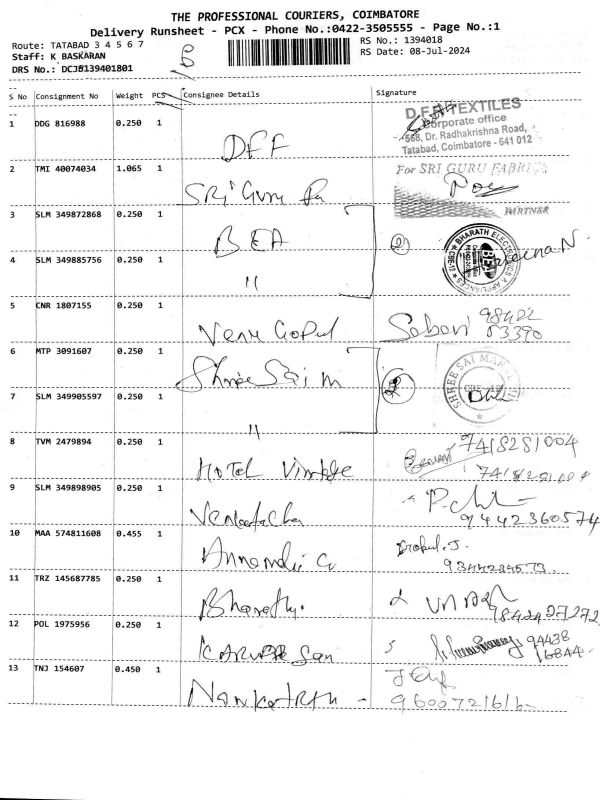 THE PROFESSIONAL COURIERS, COIMBATORE
Delivery Runsheet - PCX - Phone No.:0422-3505555 - Page No.:1
Route: TATABAD 3 4 5 6 7
RS No.: 1394018
Staff: K BASKARAN
RS Date: 08-Jul-2024
DRS No.: DCJB139401801
S No Consignment No Weight PCS Consignee Details Signature
1 DDG 816988 0.250 1 DFF
D.F.F. TEXTILES
Corporate office
568, Dr. Radhakrishna Road,
Tatabad, Coimbatore - 641 012
2 TMI 40074034 1.065 1 SRi Guru Fa
For SRI GURU FABRICS
PARTNER
3 SLM 349872868 0.250 1 BEA
2
BHARATH ELECTRONICS & APPLIANCES
CBE-12
BEA
4 SLM 349885756 0.250 1 "
5 CNR 1807155 0.250 1 Venu Gopal
Sabari 98422
53390
6 MTP 3091607 0.250 1 Shree Sai m
2
SHREE SAI
7 SLM 349905597 0.250 1 "
8 TVM 2479894 0.250 1 HOTEL
7418281004
9 SLM 349898905 0.250 1
9442360574
10 MAA 574811608 0.455 1 Annamalai
11 TRZ 145687785 0.250 1 Bharathy.
9842427272
12 POL 1975956 0.250 1
94438
16844
13 TNJ 154607 0.450 1